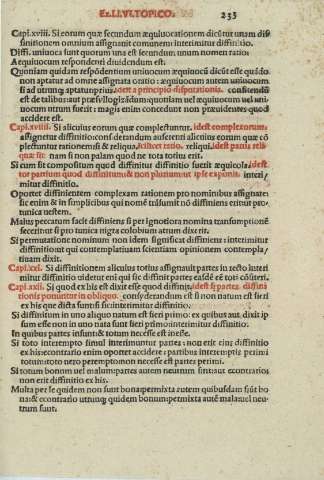 EX.LI.VI.TOPICO.
235
Capi.xviii. Si eorum quæ secundum æquiuocationem dicūtur unam dis
finitionem omnium assignauit comuneni: interimitur diffinitio.
Diffi. uniuoca sunt quorum una est secundum unam nomen ratio:
Aequiuocum respondenti diuidendum est.
Quoniam quidam respōdentium uniuocum æquiuocū dicūt esse quido
non aptatur ad omne assignata oratio: æquiuocum autem uniuocum
si ad utrunq; aptatur: prius, idest a principio disputationis. confitendū
est de talibus: aut præsyllogizādum: quoniam uel æquiuocum uel uni/
uocum utrum fuerit: magis enim concedunt non præuidentes quod
accidere est.
Capi.xviiii. Si alicuius eorum quæ complectuntur, idest complexorum:
assignetur diffinitio: considerandum auferenti alicuius eorum quæ cō
plectuntur rationem: si & reliqua, scilicet ratio. reliqui, idest partis reli
quæ sit: nam si non palam quod ne tota totius erit.
Si cum sit compositum quod diffinitur diffinitio fuerit æquicola, idest
tot partium quod diffinitum & non plurium ut ipse exponit. interi/
mitur diffinitio.
Oportet diffinientem complexam rationem pro nominibus assignare
sic enim & in simplicibus quo nomē trāsumit nō diffiniens erit ut pro
tunica uestem.
Maius peccatum facit diffiniens si per ignotiora nomina transumptionē
fecerit ut si pro tunica nigra colobium atrum dixerit.
Si permutatione nominum non idem significat diffiniens: interimitur
diffinitio: ut qui contemplatiuam scientiam opinionem contempla/
tiuam dixit.
Capi.xxi. Si diffinitionem alicuius totius assignauit partes in sexto interi
mitur diffinitio uiderut eni qui sic diffinit partes easdē eē toti cōsiteri.
Capi.xxii. Si quod ex his est dixit esse quod diffinit, idest si partes. diffini
tionis ponuntur in obliquo. considerandum est si non natum est fieri
ex his que dicta sum: si sic interimitur diffinitio.
Si diffinitum in uno aliquo natum est fieri primo: ex quibus aut dixit ip
sum esse non in uno nata sunt fieri primo interimitur diffinitio.
In quibus partes insunt: & totum necesse est inesse.
Si toto interempto simul interimuntur partes: non erit eius diffinitio
ex his: econtrario enim oportet accidere: partibus interemptis perimi
totum: toto uero perempto non necesse est partes perimi.
Si totum bonum uel malum: partes autem neutrum sint: aut econtrario
non erit diffinitio ex his.
Multa per se quidem non sunt bona: permixta autem quibusdam sūt bo
na: & econtrario utrunq; quidem bonum: permixta autē mala uel neu
trum sunt.